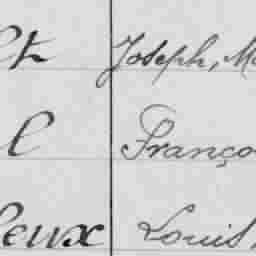 lt Joseph, Ma
l Franço
leux Louis,